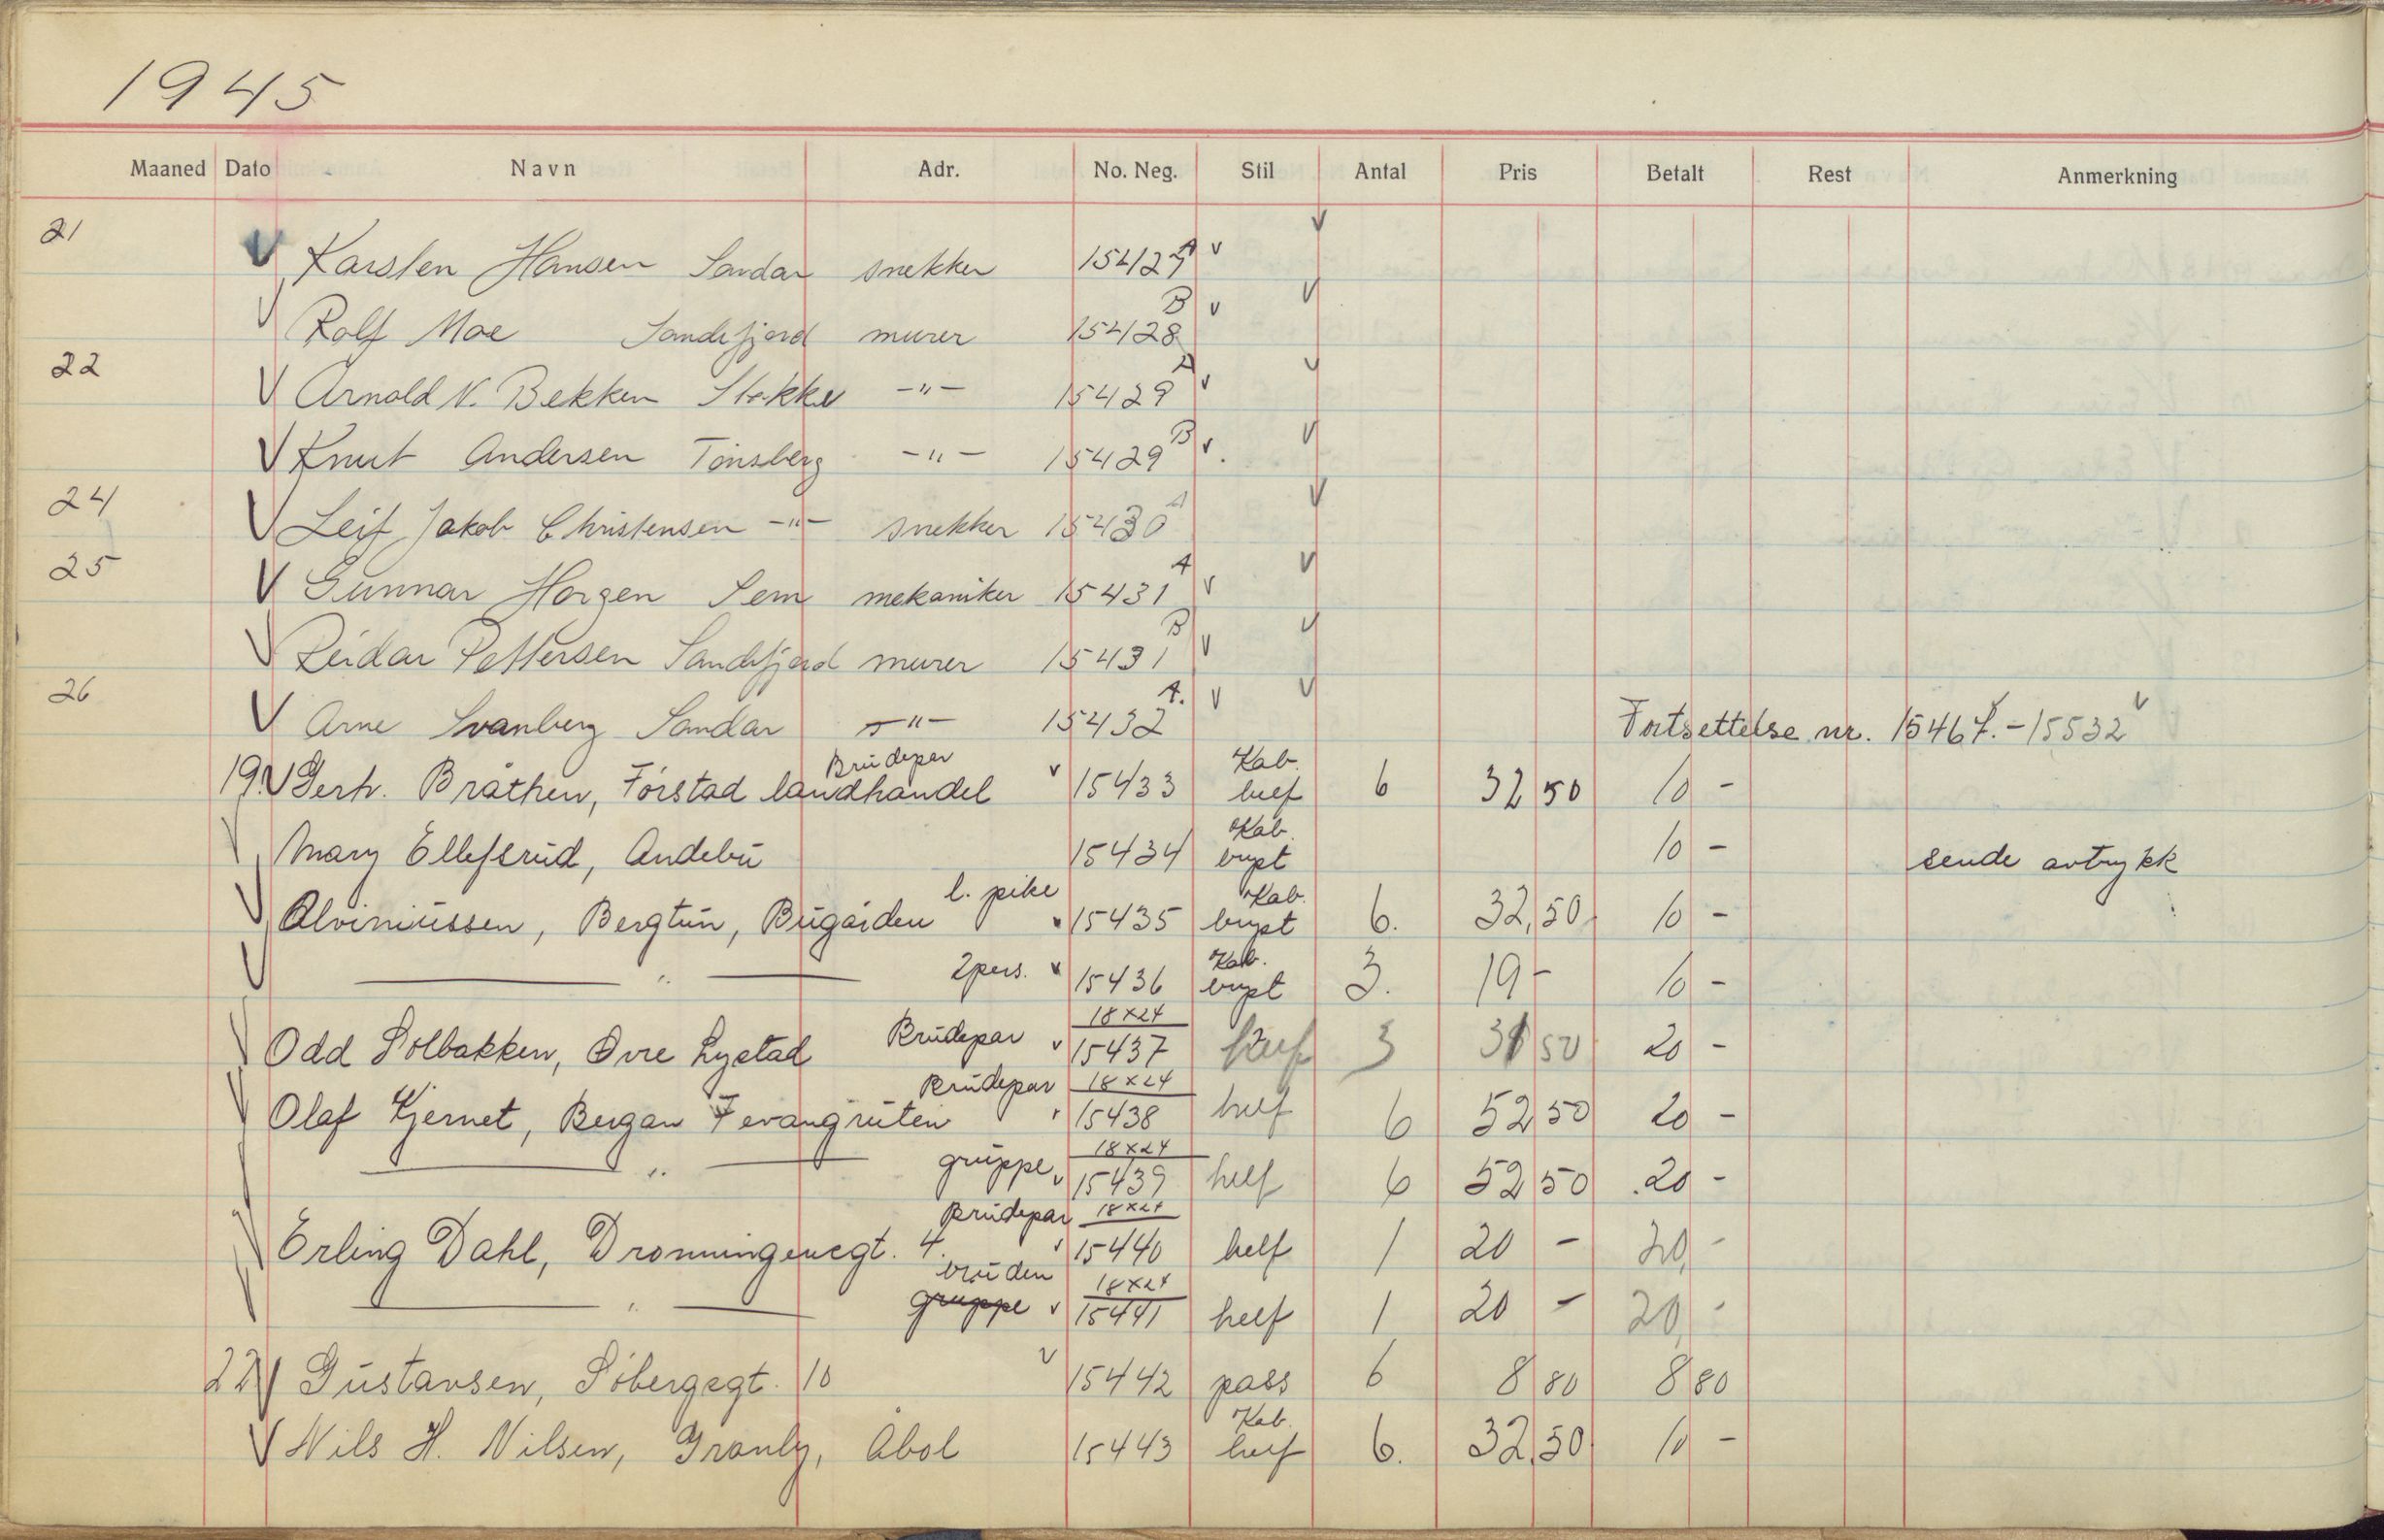 1945
Maaned Dato Navn Adr. No. Neg. Stil Antal Pris Betalt Rest Anmerkning
21 V Karsten Hansen Sandar snekker 15427 A v V
V Rolf Moe Sandefjord murer 15428 B v V
22 V Arnold N. Bekken Stokke -"- 15429 A v V
V Knut Andersen Tönsberg -"- 15429 B v. V
24 V Leif Jakob Christensen -"- snekker 15430 A V
25 V Gunnar Horgen Sem mekaniker 15431 A v V
V Reidar Pettersen Sandefjord murer 15431 B v V
26 V Arne Svanberg Sandar -"- 15432 A. v V Fortsettelse nr. 15467.-15532 v
19. V Gerh. Bråthen, Förstad landhandel Brudepar v 15433 Kab. helf 6 32 50 10 -
V Mary Ellefsrud, Andebu 15434 Kab. bryst 10 - sende avtrykk
V Alviniussen, Bergtun, Bugården l. pike 15435 Kab. bryst 6. 32,50 10 -
V — " — 2 pers. v 15436 Kab. bryst 3. 19 - 10 -
V Odd Solbakken, Övre Lystad Brudepar v 18x24 15437 3 50 20 -
V Olaf Kjernet, Bergan Fevangruten Brudepar v 18x24 15438 helf 6 52 50 20 -
— " — gruppe v 18x24 15439 helf 6 52 50 20 -
V Erling Dahl, Dronningensgt. 4. Brudepar v 18x24 15440 helf 1 20 - 20 -
— " — bruden gruppe v 18x24 15441 helf 1 20 - 20, -
22 V Gustavsen, Söbergsgt. 10 v 15442 pass 6 8 80 8 80
V Nils H. Nilsen, Granly, Åbol 15443 Kab. helf 6. 32,50 10 -